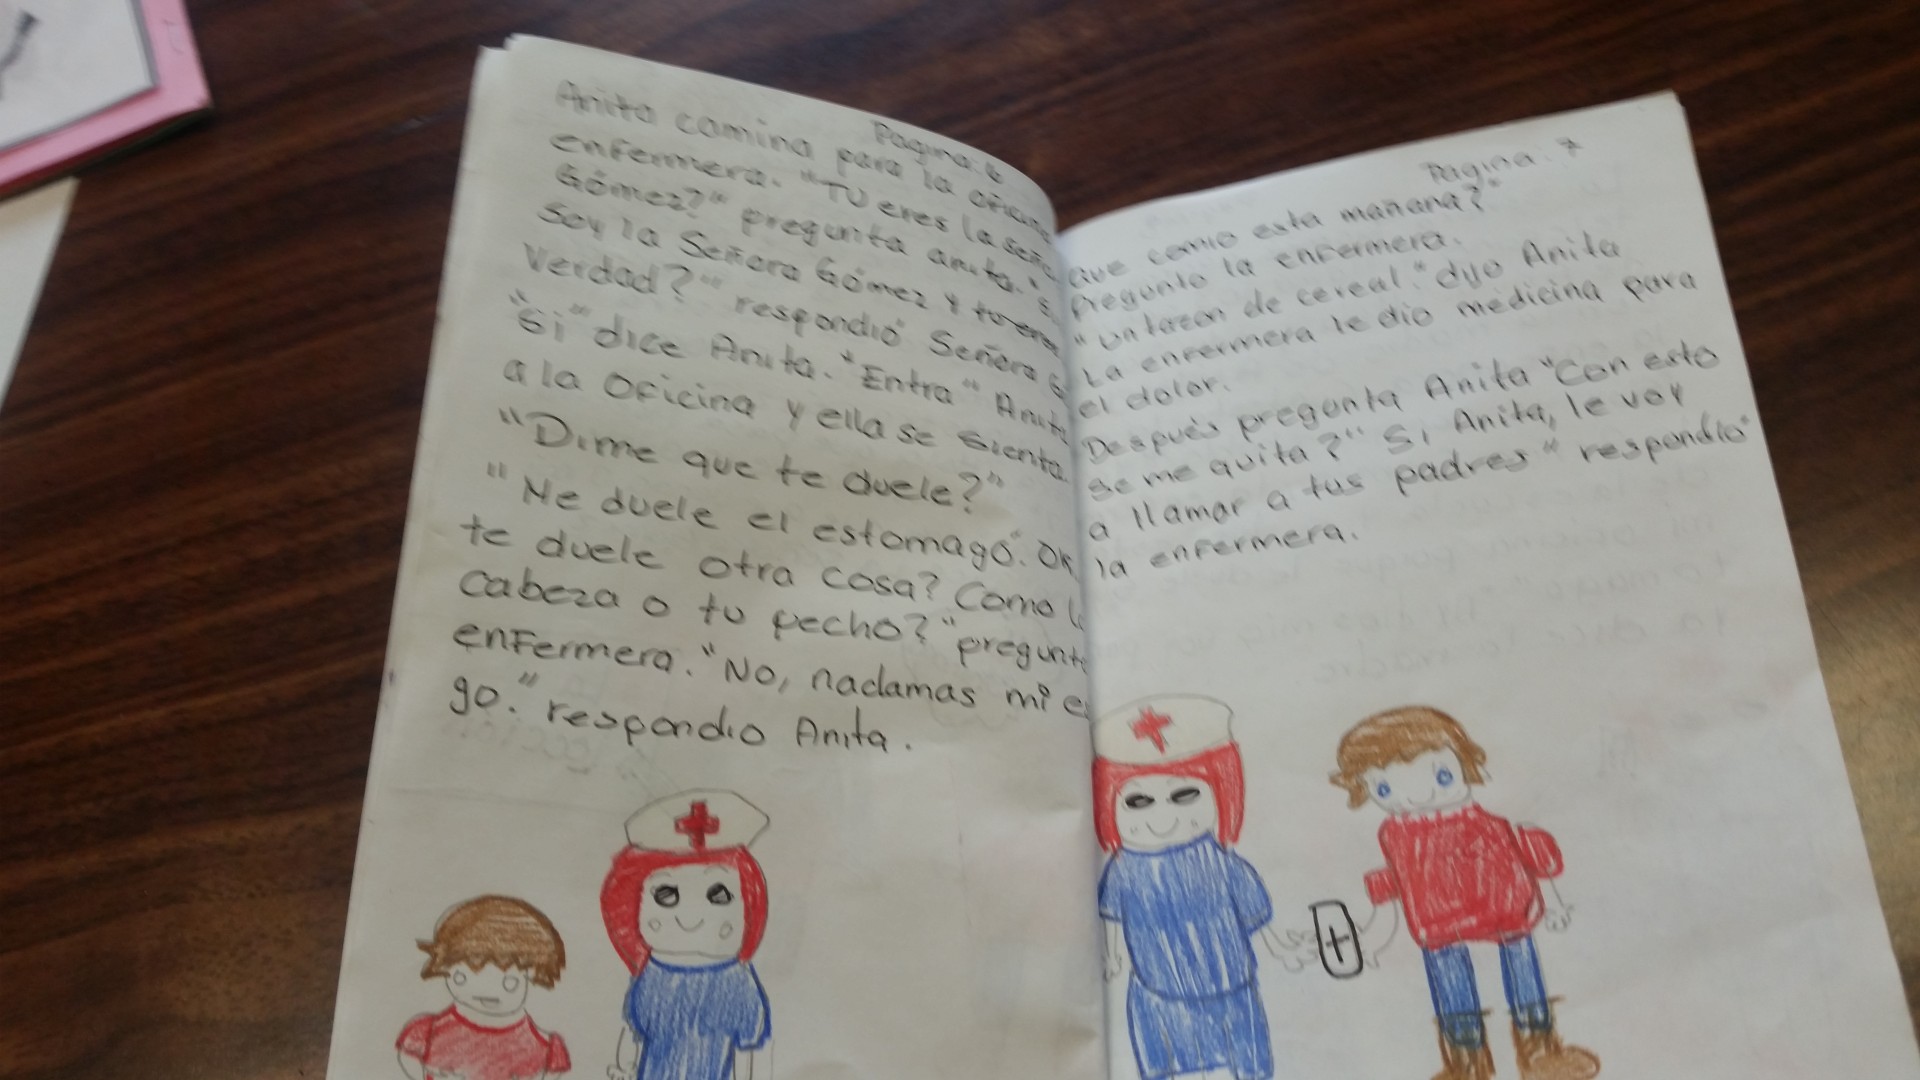 Pagina: 6
Anita camina para la oficina
enfermera. "Tu eres la seño
Gómez?" pregunta anita. "S
Soy la Señora Gómez y tu eres
Verdad?" respondió Señora G
"Si" dice Anita. "Entra" Anita
a la oficina y ella se sienta.
"Dime que te duele?"
"Me duele el estomago". Ok.
te duele otra cosa? Como l
cabeza o tu pecho?" pregunt
enfermera. "No, nadamas mi e
go." respondio Anita.
Pagina: 7
Que comio esta mañana?"
Pregunto la enfermera.
"Un tazon de cereal." dijo Anita
La enfermera le dio medicina para
el dolor.
Después pregunta Anita "Con esto
se me quita?" Si Anita, le voy
a llamar a tus padres" respondio
la enfermera.